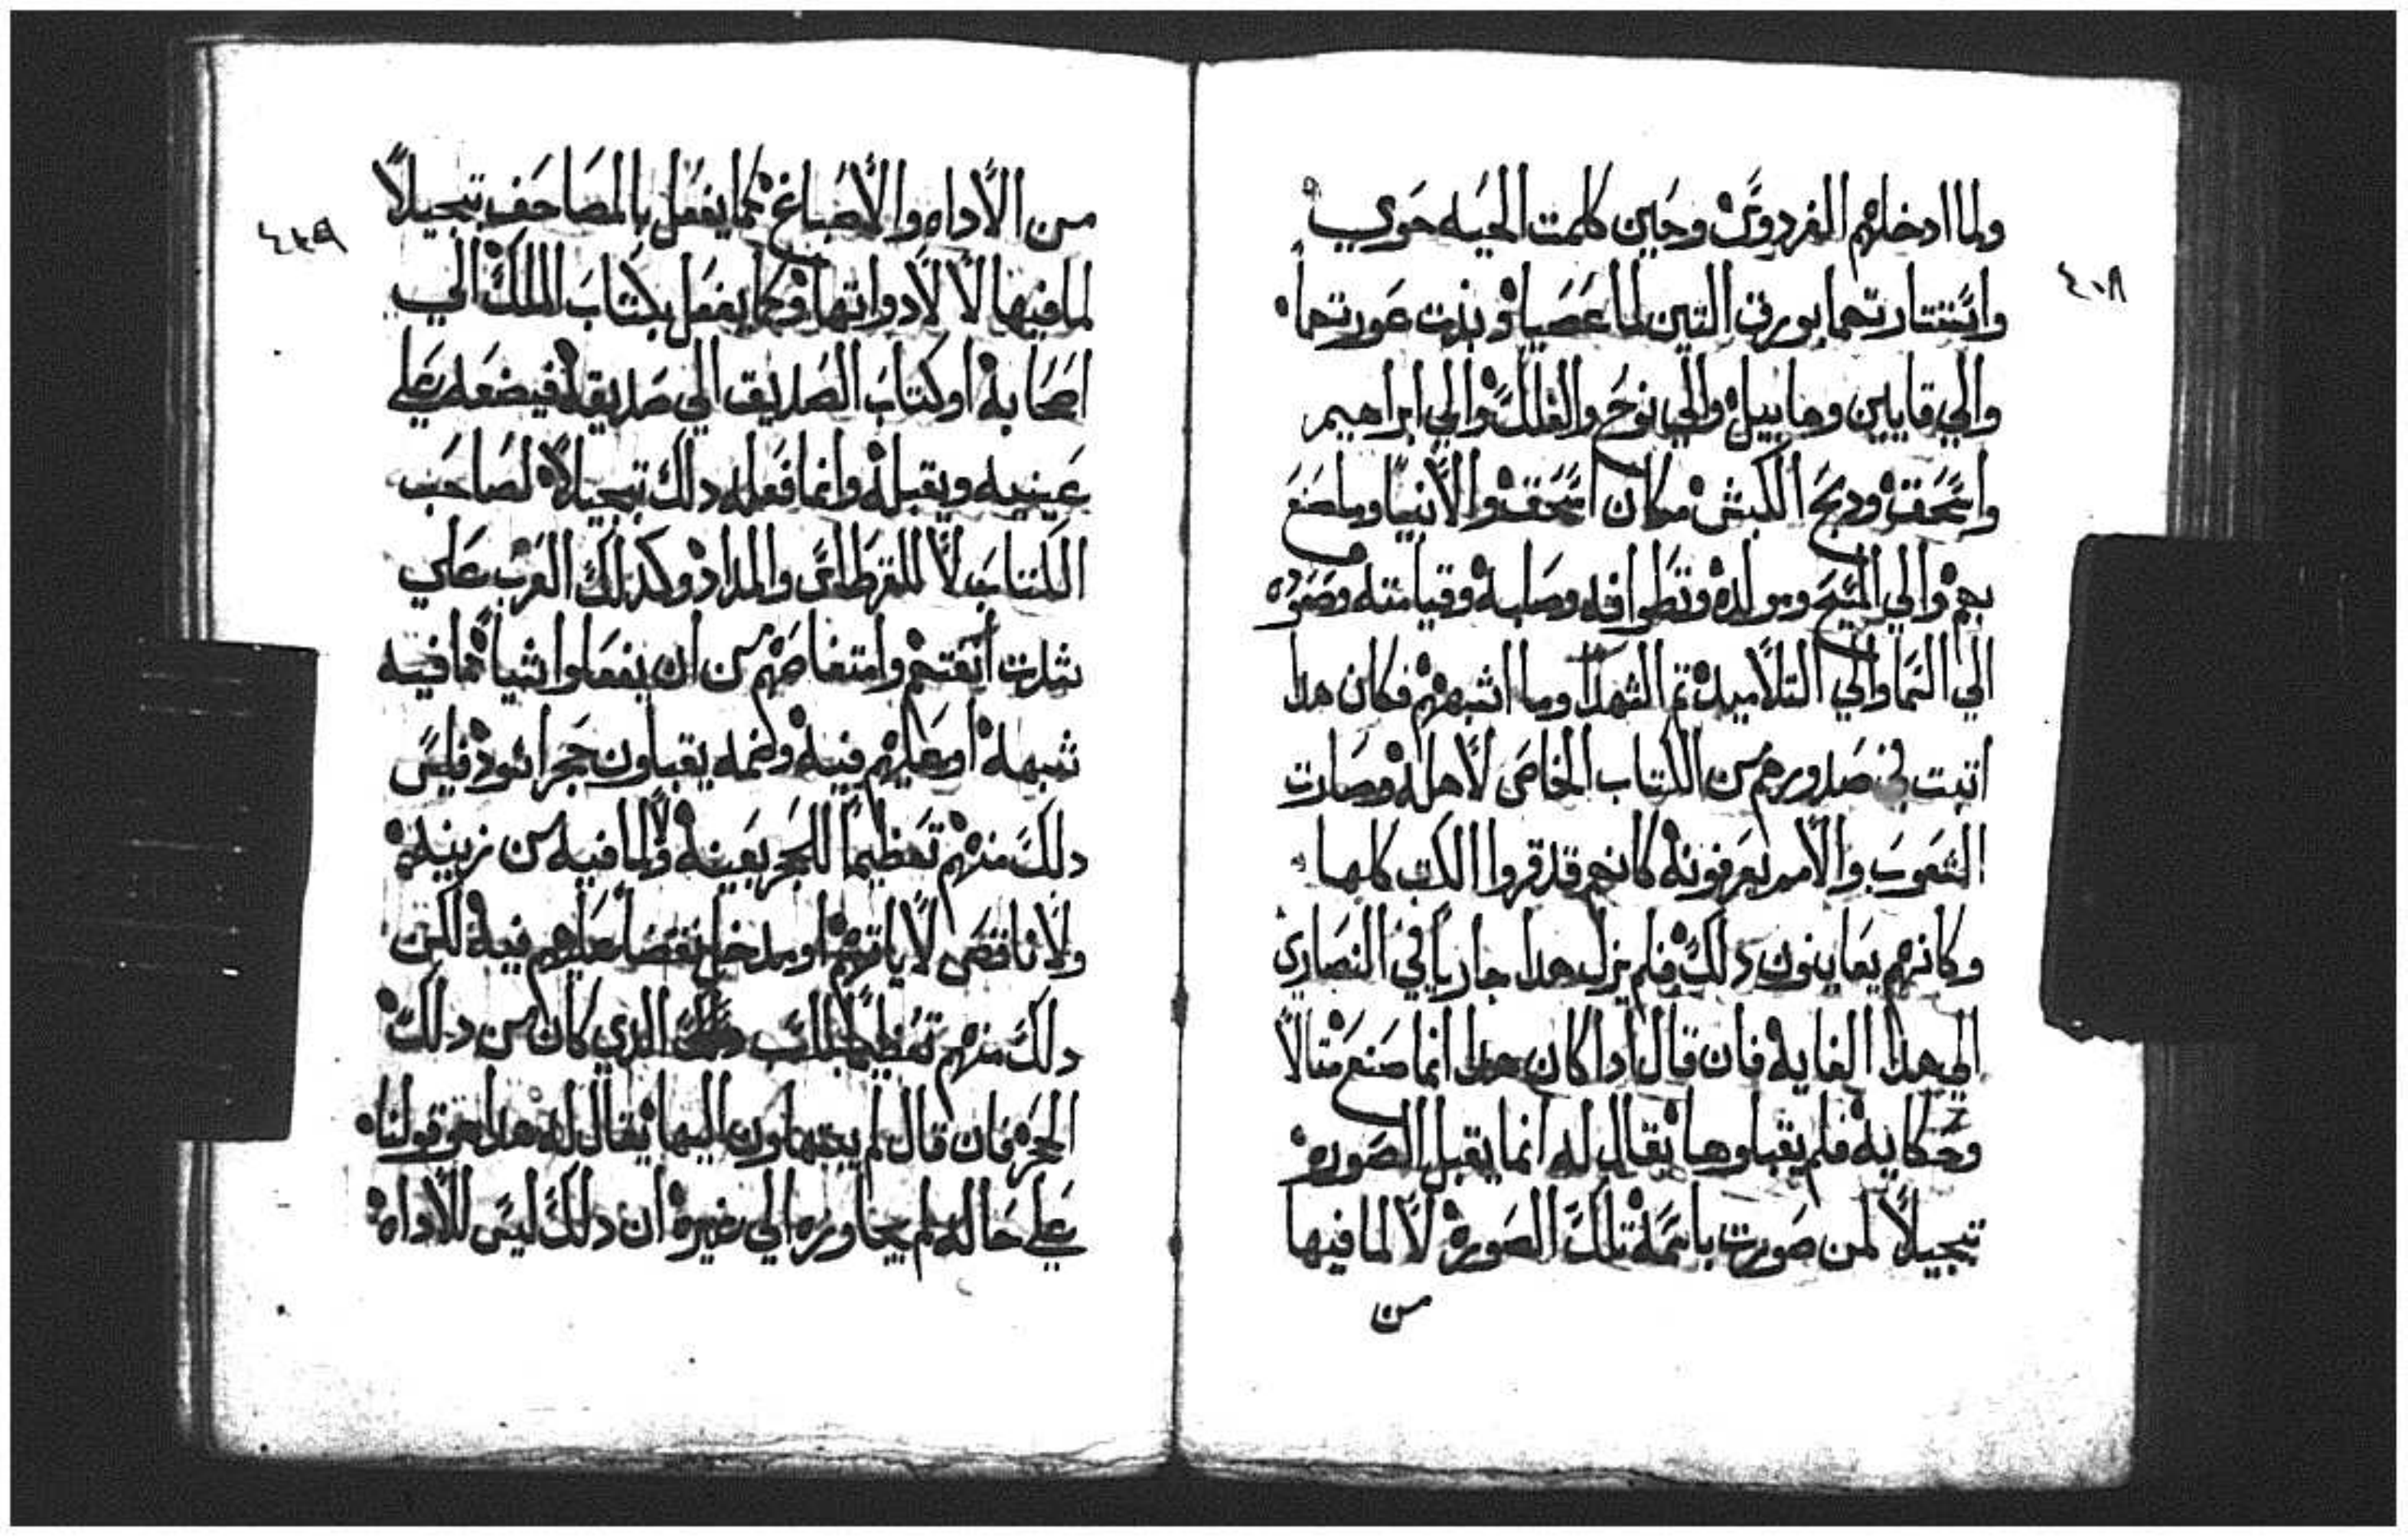 ولما ادخلهم الفردوس وحين كلمت الحيه حوي
واستتارتهما بورق التين لما عصيا وبدت عورتهما
والي قايين وهابيل والي نوح والفلك والي ابراهيم
واسحق ودبح الكبش مكان اسحق والانبيا وما صنع
بهم والي المسيح ومولده وتطوافه وصلبه وقيامته وصعوده
الي السما والي التلاميد تم الشهدا وما اشبههم فكان هدا
اتبت في صدورهم من الكتاب الخاص لاهله وصارت
الشعوب والامم يعرفونه كانهم قد قروا الكتب كلها
وكانهم يعاينون دلك فلم يزل هدا جاريا في النصاري
الي هدا الغايه فان قال ادا كان هدا انما صنع متالا
وحكايه فلم يقبلوها يقال له انما يقبل الصوره
تبجيلا لمن صورت باسمه تلك الصوره لا لما فيها
من
٤٠٨
من الاداه والاصباغ كما يفعل بالمصاحف تبجيلا
لما فيها لا لادواتها وكما يفعل بكتاب الملك الي
اصحابه او كتاب الصديق الي صديقه فيضعه علي
عينيه ويقبله وانما فعله دلك تبجيلا لصاحب
الكتاب لا للقرطاس والمداد وكدلك العرب علي
شدت انفتهم وامتعاضهم من ان يفعلوا شيا مما فيه
شبهه او عليهم فيه وصمه يقبلون حجرا اسود فليس
دلك منهم تعظيما للحجر بعينه ولا لما فيه من زينه
ولا ناقص لا ياتهم او يدخل نقصا عليهم فيه لكن
دلك منهم تعظيما الدي كان من دلك
الحجر فان قال لم يبتهلون اليها يقال له هدا هو قولنا
علي حاله لم يجاوزه الي غيره ان دلك ليس للاداه
٤٠٩